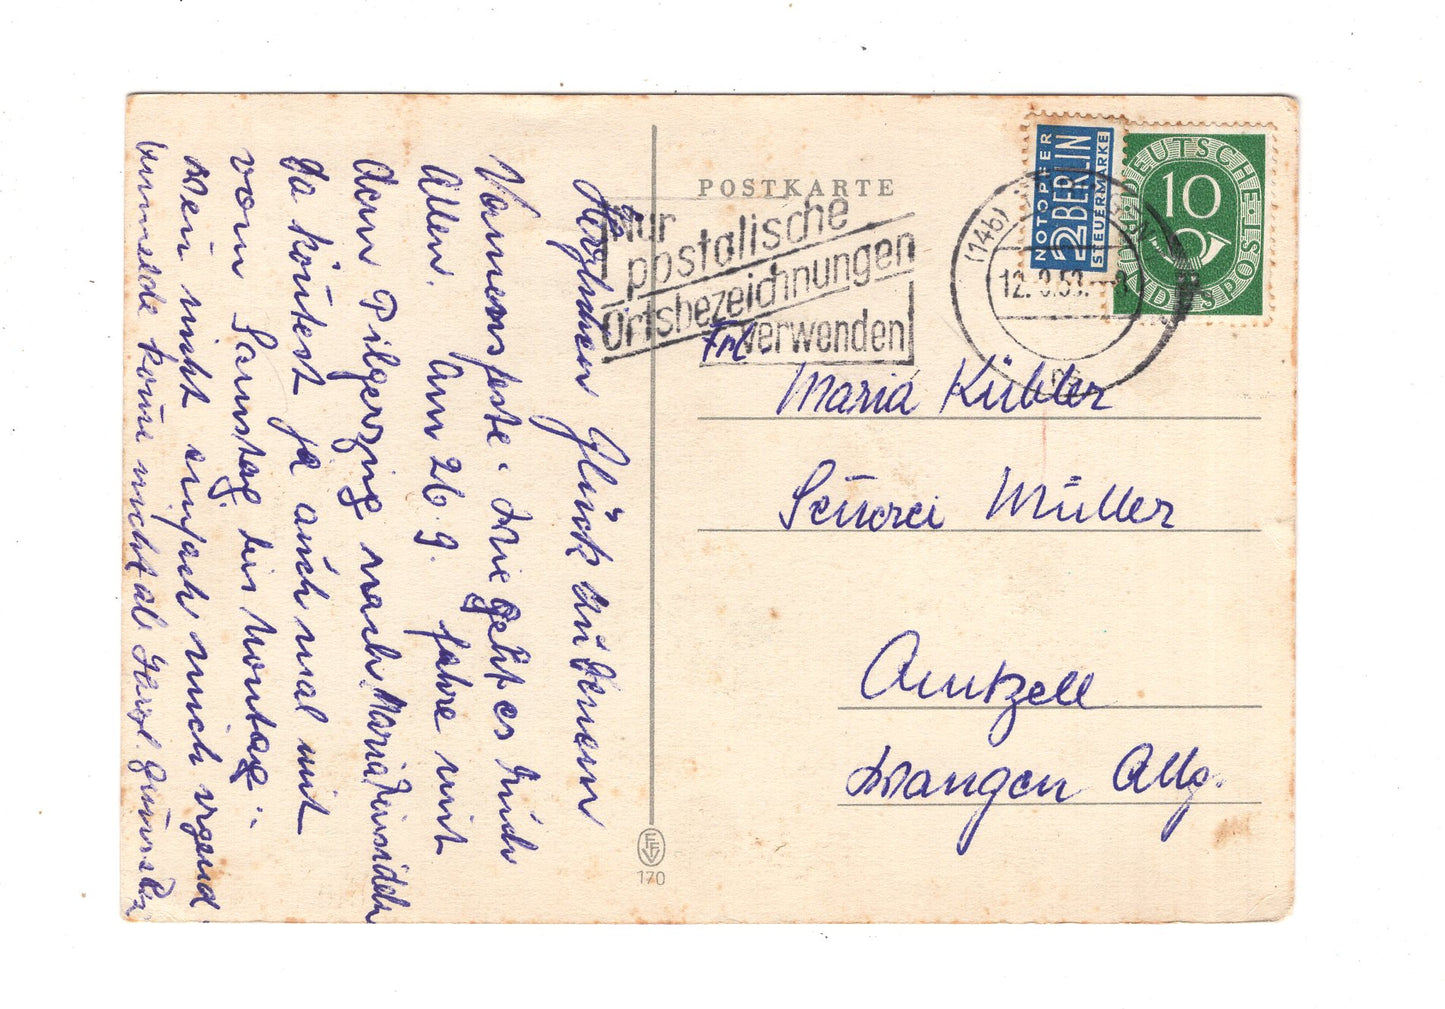 Herzlichen Glück zu Deinem
Namensfeste. Wie geht es Euch
Allen. Am 26.9. fahre mit
dem Pilgerzug nach Maria Einsiedeln
da könntest ja auch mal mit
vom Samstag bis Montag.
Wenn nicht einfach mich irgend
komme nicht ab
POSTKARTE
Nur
postalische
Ortsbezeichnungen
verwenden
NOTOPFER
2 BERLIN
STEUERMARKE
DEUTSCHE BUNDESPOST
10
(14b)
12. 9. 53.
Frl.
Maria Kübler
Senerei Müller
Amtzell
Wangen Allg.
EFV
170